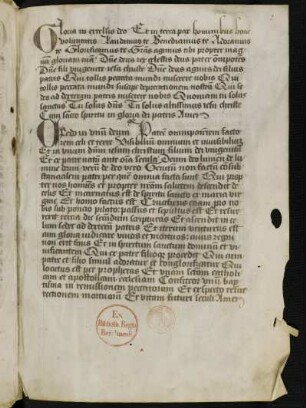 Gloria in excelsis deo Et in terra pax hominibus bone
voluntatis Laudamus te Benedicimus te Adoramus
te Glorificamus te Gracias agimus tibi propter mag
gloriam tuam Dne deus rex celestis deus pater omnipotens
Dne fili unigenite iesu christe Dne deus agnus dei filius
patris Qui tollis peccata mundi miserere nobis Qui
tollis peccata mundi suscipe deprecationem nostram Qui se
des ad dexteram patris miserere nobis Quoniam tu solus
sanctus Tu solus dns Tu solus altissimus iesu christe
Cum sancto spiritu in gloria dei patris Amen
Credo in unum deum Patrem omnipotentem facto
rem celi et terre visibilium omnium et invisibilium
Et in unum dnm iesum christum filium dei unigenitum
Et ex patre natum ante omnia secula Deum de deo lumen de lu
mine deum verum de deo vero Genitum non factum consub
stancialem patri per quem omnia facta sunt Qui prop
ter nos homines et propter nostram salutem descendit de
celis Et incarnatus est de spiritu sancto ex maria vir
gine Et homo factus est Crucifixus eciam pro no
bis sub poncio pilato passus et sepultus est Et resur
rexit tercia die secundum scripturas Et ascendit in ce
lum sedet ad dexteram patris Et iterum venturus est
cum gloria iudicare vivos et mortuos cuius regni
non erit finis Et in spiritum sanctum dominum et vi
vificantem Qui ex patre filioque procedit Qui cum
patre et filio simul adoratur et conglorificatur Qui
locutus est per prophetas Et unam sanctam catholi
cam et apostolicam ecclesiam Confiteor unum bap
tisma in remissionem peccatorum Et expecto resur
rectionem mortuorum Et vitam futuri seculi Amen
Ex
Biblioth. Regia
Berolinensi